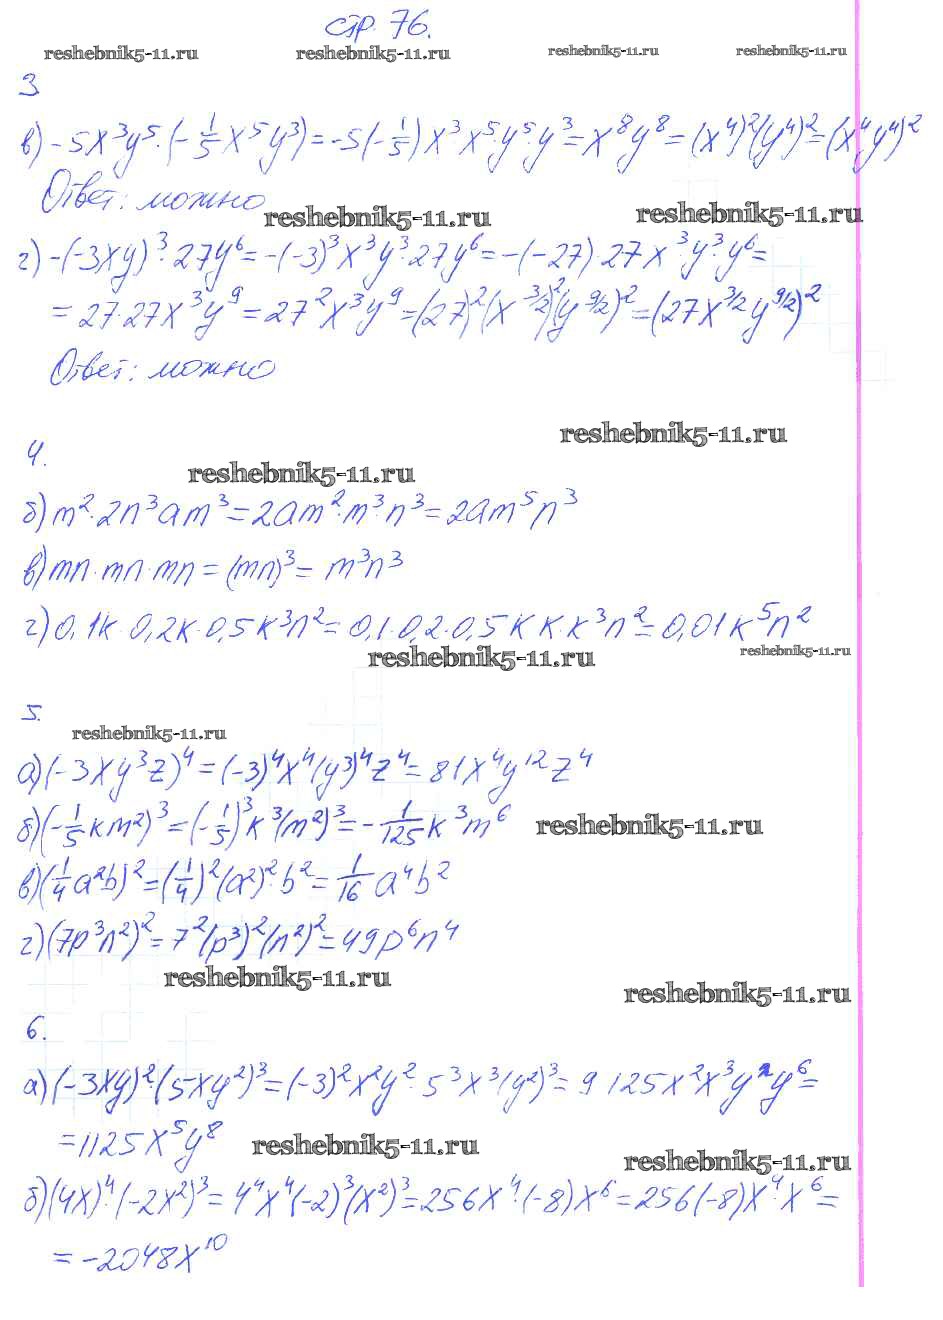 стр. 76.
reshebnik5-11.ru reshebnik5-11.ru reshebnik5-11.ru reshebnik5-11.ru
3
в) -5x³y⁵·(-1/5x⁵y³)=-5(-1/5)x³x⁵·y⁵·y³=x⁸y⁸=(x⁴)²(y⁴)²=(x⁴y⁴)²
Ответ: можно
reshebnik5-11.ru reshebnik5-11.ru
г) -(-3xy)³·27y⁶=-(-3)³x³y³·27y⁶=-(-27)·27x³·y³·y⁶=
=27·27x³y⁹=27²x³y⁹=(27)²(x^3/2)²(y^9/2)²=(27x^3/2y^9/2)²
Ответ: можно
reshebnik5-11.ru
4.
reshebnik5-11.ru
б) m²·2n³am³=2am²·m³·n³=2am⁵n³
в) mn·mn·mn=(mn)³=m³n³
г) 0,1k·0,2k·0,5k³n²=0,1·0,2·0,5k·k·k³n²=0,01k⁵n²
reshebnik5-11.ru reshebnik5-11.ru
5.
reshebnik5-11.ru
а) (-3xy³z)⁴=(-3)⁴x⁴(y³)⁴z⁴=81x⁴y¹²z⁴
б) (-1/5km²)³=(-1/5)³k³(m²)³=-1/125k³m⁶
reshebnik5-11.ru
в) (1/4a²b)²=(1/4)²(a²)²·b²=1/16a⁴b²
г) (7p³n²)²=7²(p³)²(n²)²=49p⁶n⁴
reshebnik5-11.ru reshebnik5-11.ru
6.
а) (-3xy)²·(5xy²)³=(-3)²x²y²·5³x³(y²)³=9·125x²x³y²y⁶=
=1125x⁵y⁸
reshebnik5-11.ru reshebnik5-11.ru
б) (4x)⁴·(-2x²)³=4⁴x⁴(-2)³(x²)³=256x⁴·(-8)x⁶=256(-8)x⁴x⁶=
=-2048x¹⁰